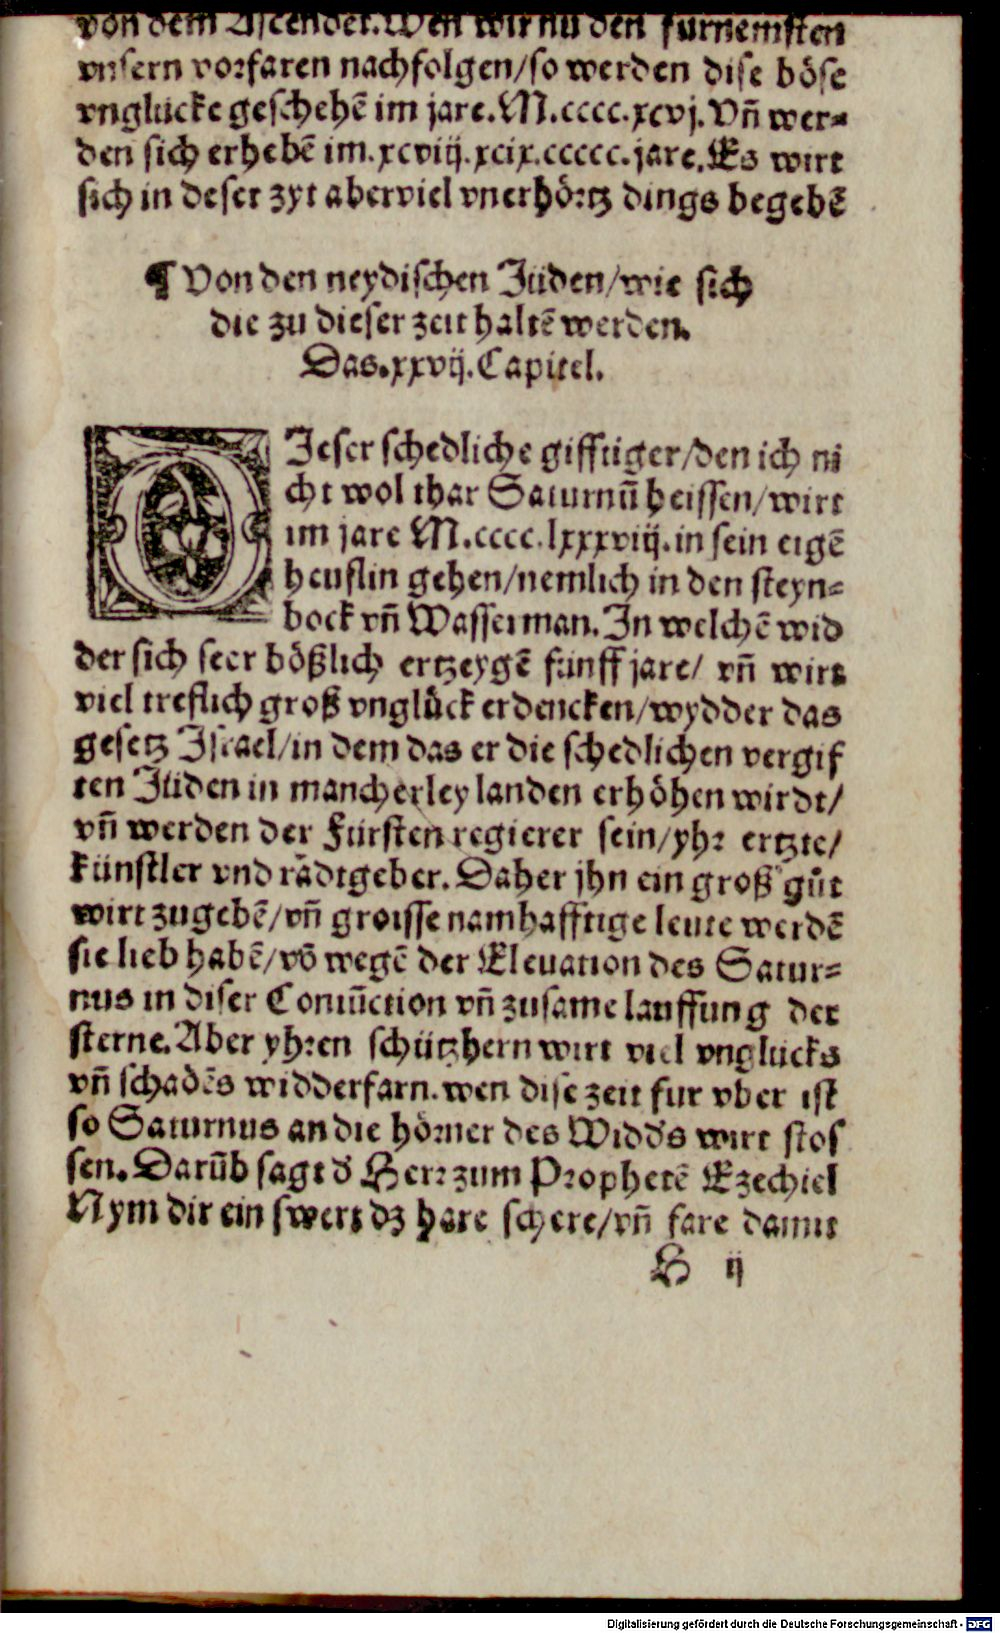 von dem Ascendet. Wen wir nu den furnemsten
vnsern vorfaren nachfolgen/so werden dise böse
vnglücke geschehē im jare. M.cccc.xcvj. Vñ wer=
den sich erhebē im .xcviij.xcix.ccccc. jare. Es wirt
sich in deser zyt aber viel vnerhörtz dings begebē
¶ Von den neydischen Jüden/wie sich
die zu dieser zeit haltē werden.
Das .xxvij. Capitel.
DJeser schedliche gifftiger/den ich ni
cht wol thar Saturnū heissen/wirt
im jare M.cccc.lxxxviij. in sein eigē
heuslin gehen/nemlich in den steyn=
bock vñ Wasserman. In welchē wid
der sich seer bößlich ertzeygē funff jare/ vñ wirt
viel treflich groß vnglück erdencken/wydder das
gesetz Israel/in dem das er die schedlichen vergif
ten Jüden in mancherley landen erhöhen wirdt/
vñ werden der Fürsten regierer sein/yhr ertzte/
künstler vnd rädtgeber. Daher jhn ein groß gůt
wirt zugebē/vñ groisse namhafftige leute werdē
sie lieb habē/vō wegē der Elevation des Satur=
nus in diser Coniūction vñ zusame lauffung der
sterne. Aber yhren schützhern wirt viel vnglücks
vñ schadēs widderfarn. wen dise zeit fur vber ist
so Saturnus an die hörner des Widd's wirt stos
sen. Darūb sagt d' Herr zum Prophetē Ezechiel
Nym dir ein swert dz hare schere/vñ fare damit
H ij
Digitalisierung gefördert durch die Deutsche Forschungsgemeinschaft - DFG